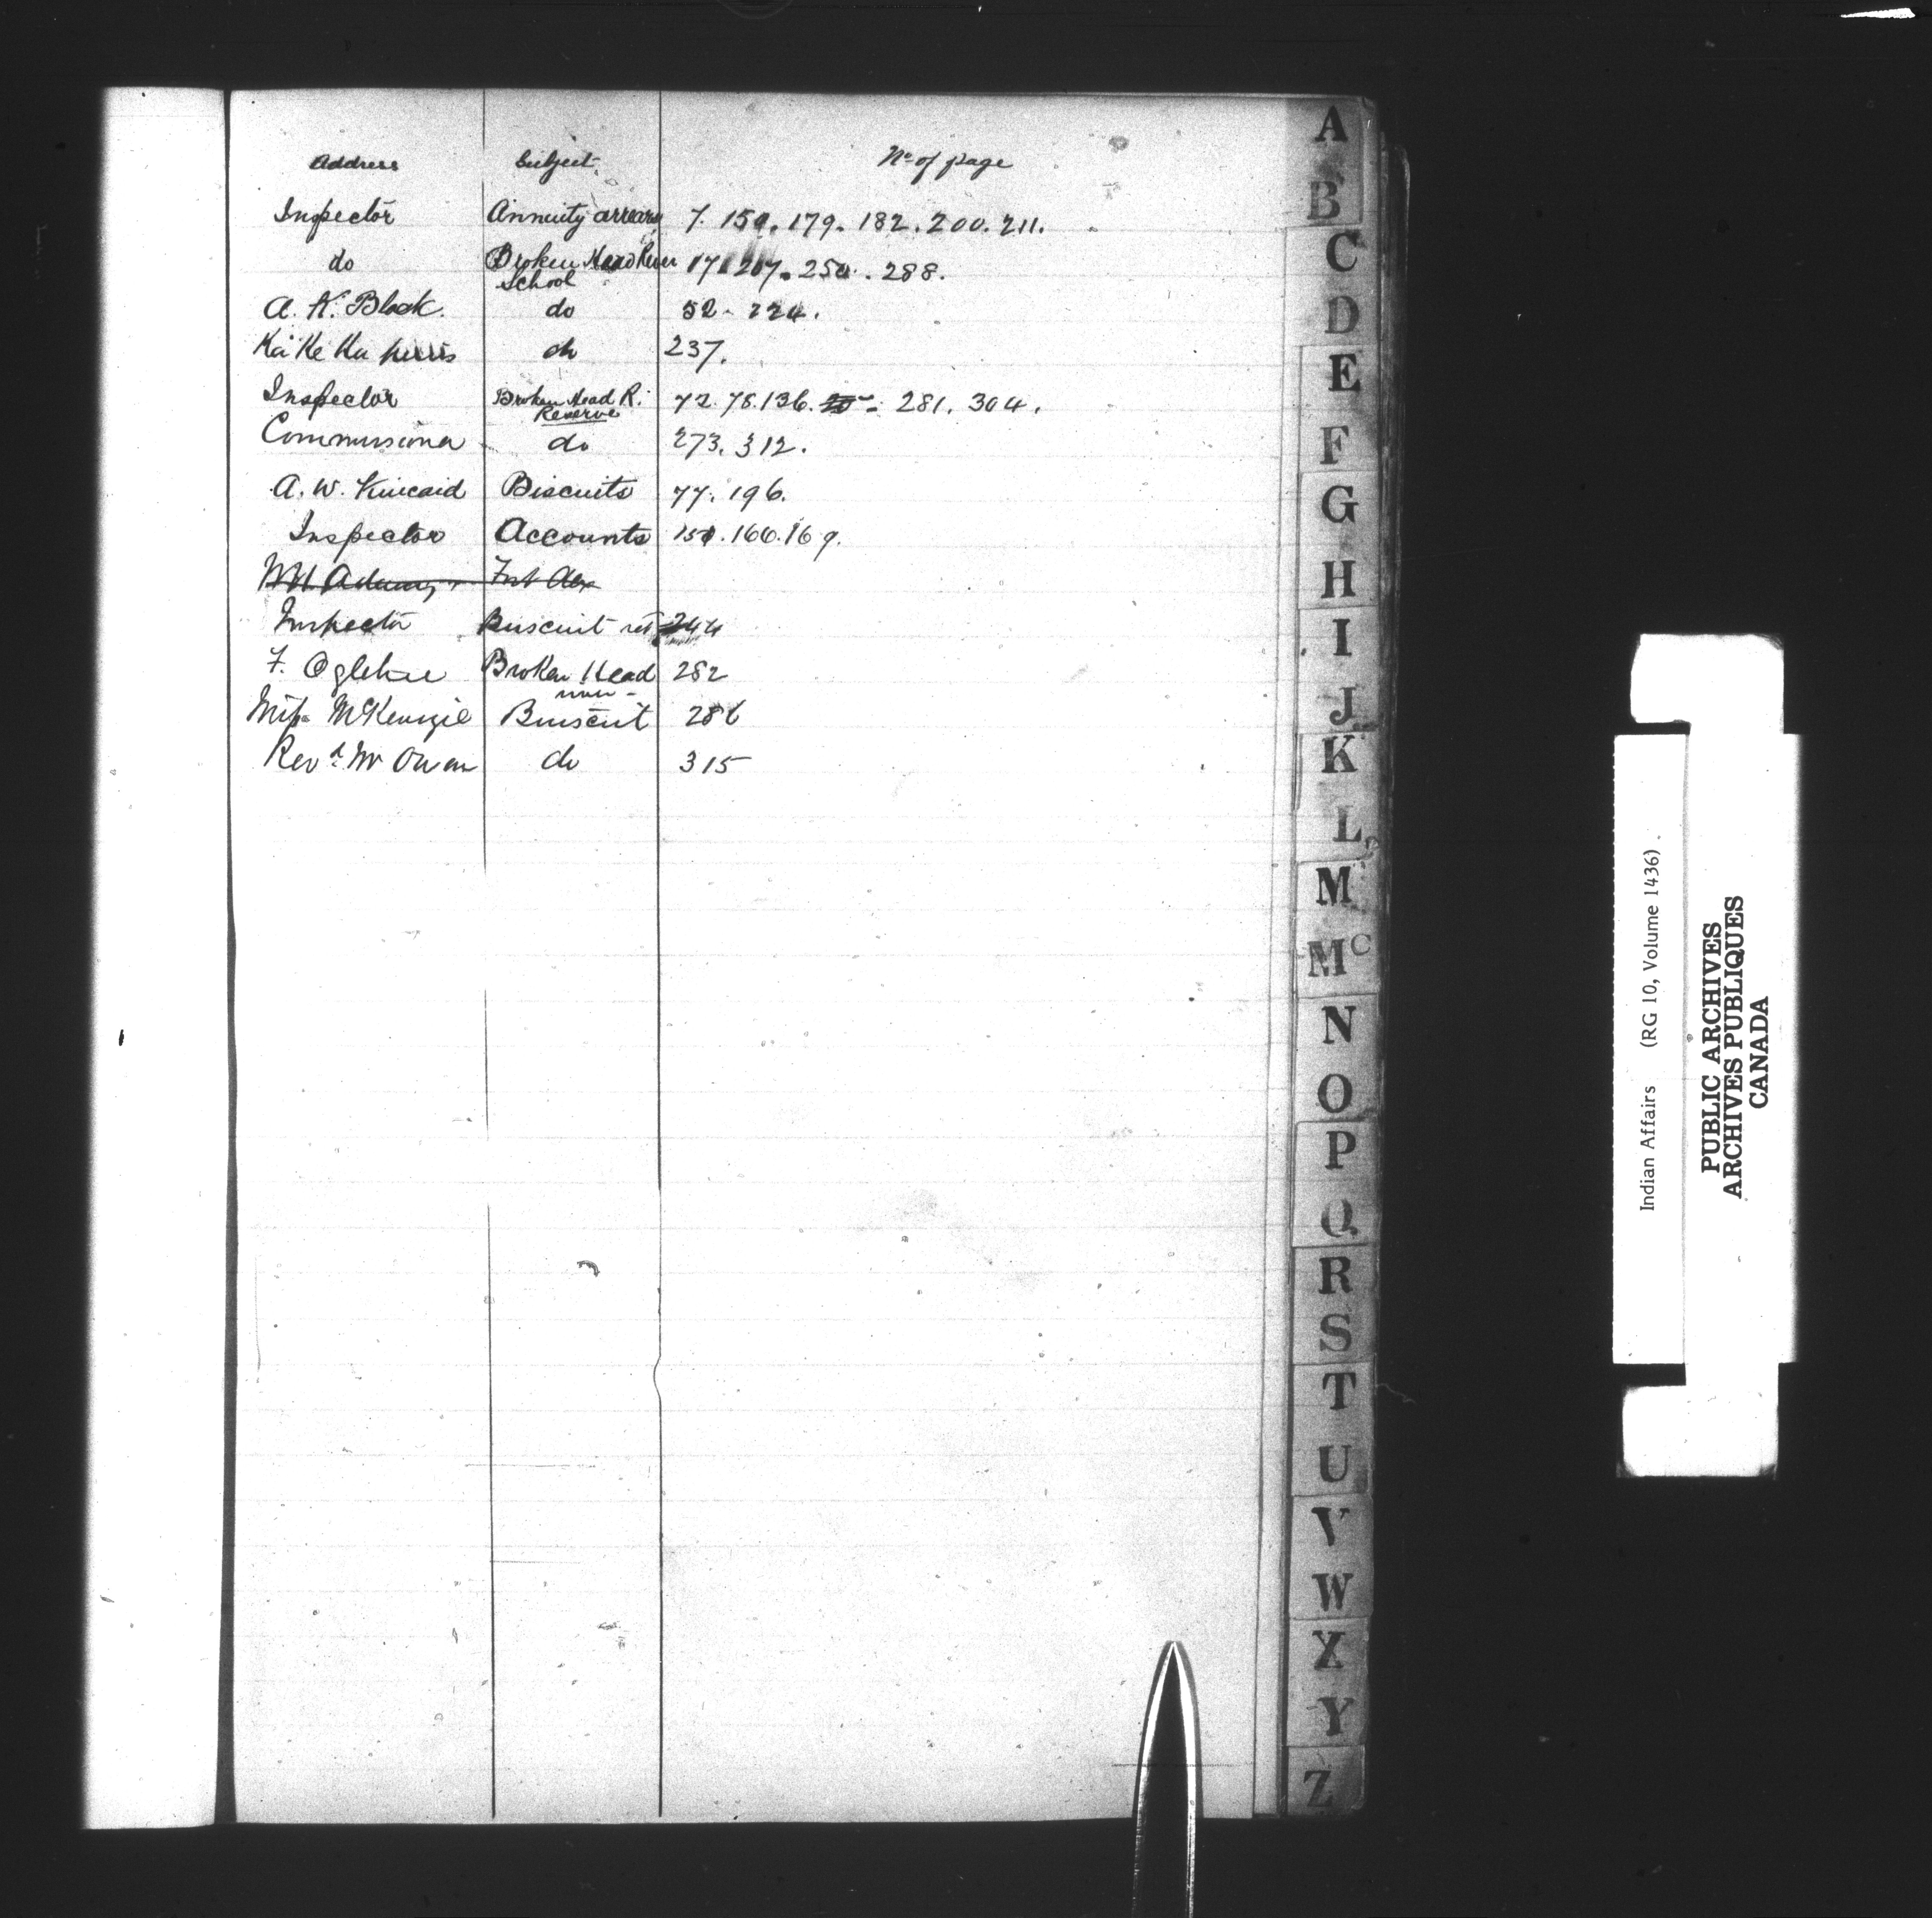 Address Subject No of page
Inspector Annuity arrears 7. 150. 179. 182. 200. 211.
do Broken Head River 17. 217. 250. 288.
School
A. K. Black. do 52. 224.
Ka Ke Ka do 237.
Inspector Broken Head R. 72. 78. 136. 281. 304.
Reserve
Commissioner do 273. 312.
A. W. Kincaid Biscuits 77. 196.
Inspector Accounts 151. 166. 169.
Fort Alex
Inspector Buiscuit 244
F. Ogletree Broken Head 282
river
Miss McKenzie Buiscuit 286
Revd. Mr Owen do 315
A
B
C
D
E
F
G
H
I
J
K
L
M
Mc
N
O
P
Q
R
S
T
U
V
W
X
Y
Z
Indian Affairs (RG 10, Volume 1436)
PUBLIC ARCHIVES
ARCHIVES PUBLIQUES
CANADA